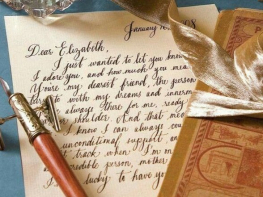 January
Dear Elizabeth,
I just wanted to let you know
I adore you, and how much you mean
You're my dearest friend, the person
trust with my dreams and innerm
always there for me, ready
shoulder. And that mea
I know I can always cou
unconditional support, an
track when I'm
credible person, mother
lucky to have yo